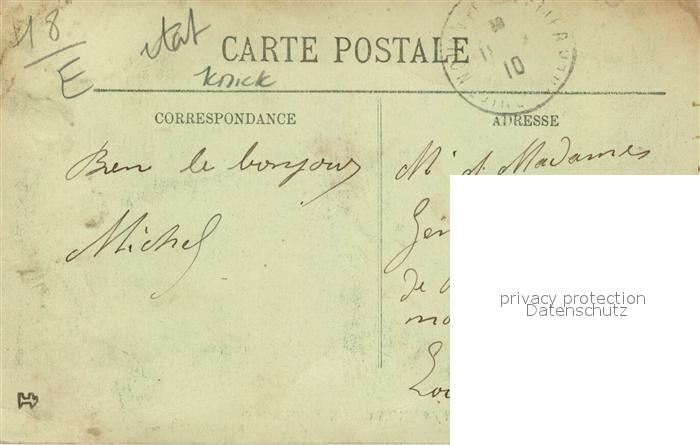 48/E
etat
knick
CARTE POSTALE
10
CORRESPONDANCE
ADRESSE
Bien le bonjour
Michel
Mr et Madames
de
privacy protection
Datenschutz